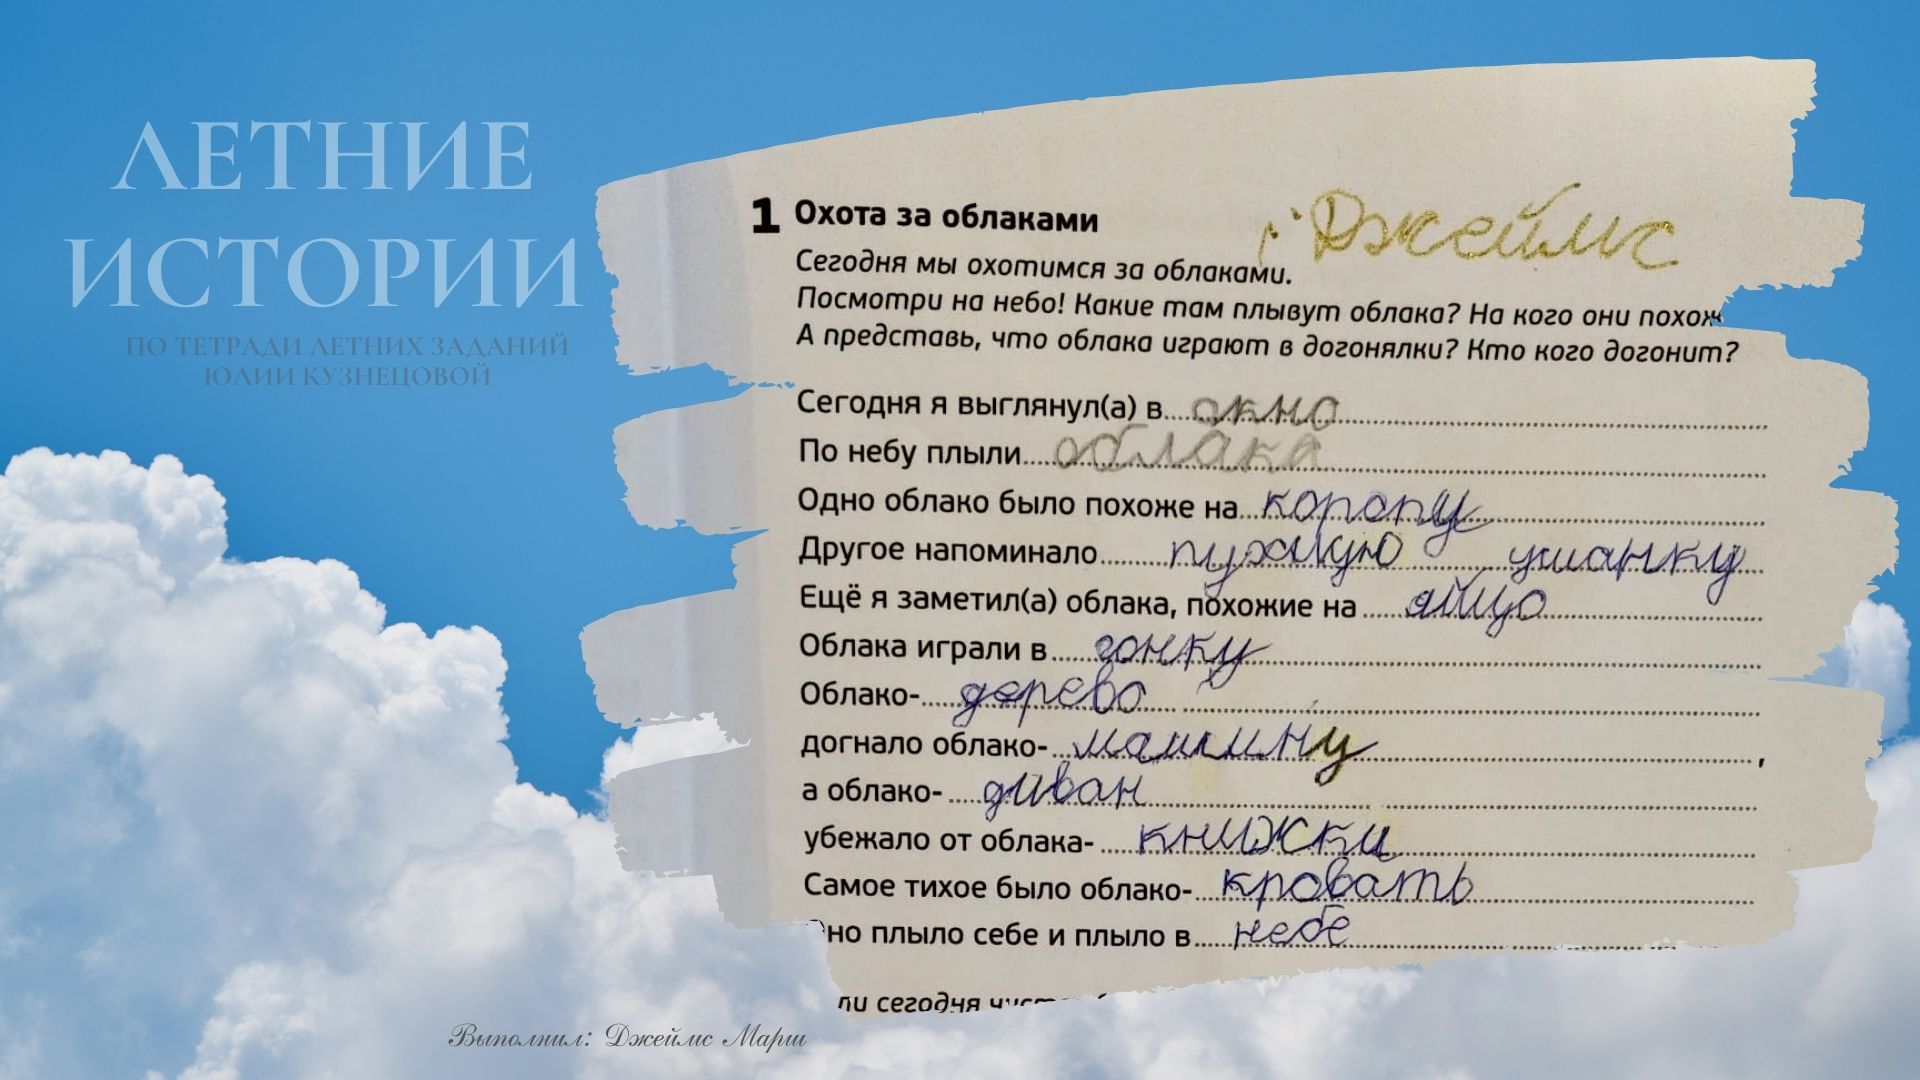 ЛЕТНИЕ
ИСТОРИИ
ПО ТЕТРАДИ ЛЕТНИХ ЗАДАНИЙ
ЮЛИИ КУЗНЕЦОВОЙ
Джеймс
1 Охота за облаками
Сегодня мы охотимся за облаками.
Посмотри на небо! Какие там плывут облака? На кого они похож
А представь, что облака играют в догонялки? Кто кого догонит?
Сегодня я выглянул(а) в окно
По небу плыли облака
Одно облако было похоже на
Другое напоминало ушанку
Ещё я заметил(а) облака, похожие на яйцо
Облака играли в гонку
Облако- дерево
догнало облако- машину,
а облако- диван
убежало от облака- книжки
Самое тихое было облако- кровать
но плыло себе и плыло в небе
ли сегодня
Выполнил: Джеймс Марш